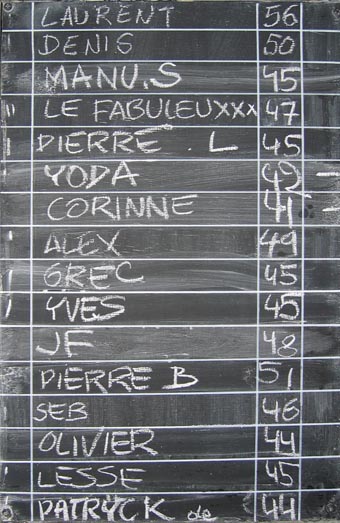 LAURENT 56
DENIS 50
MANU.S 45
LE FABULEUXXX 47
PIERRE . L 45
YODA 42
CORINNE 41
ALEX 49
GREC 45
YVES 45
JF 48
PIERRE B 51
SEB 46
OLIVIER 44
LESSE 45
PATRYCK 44